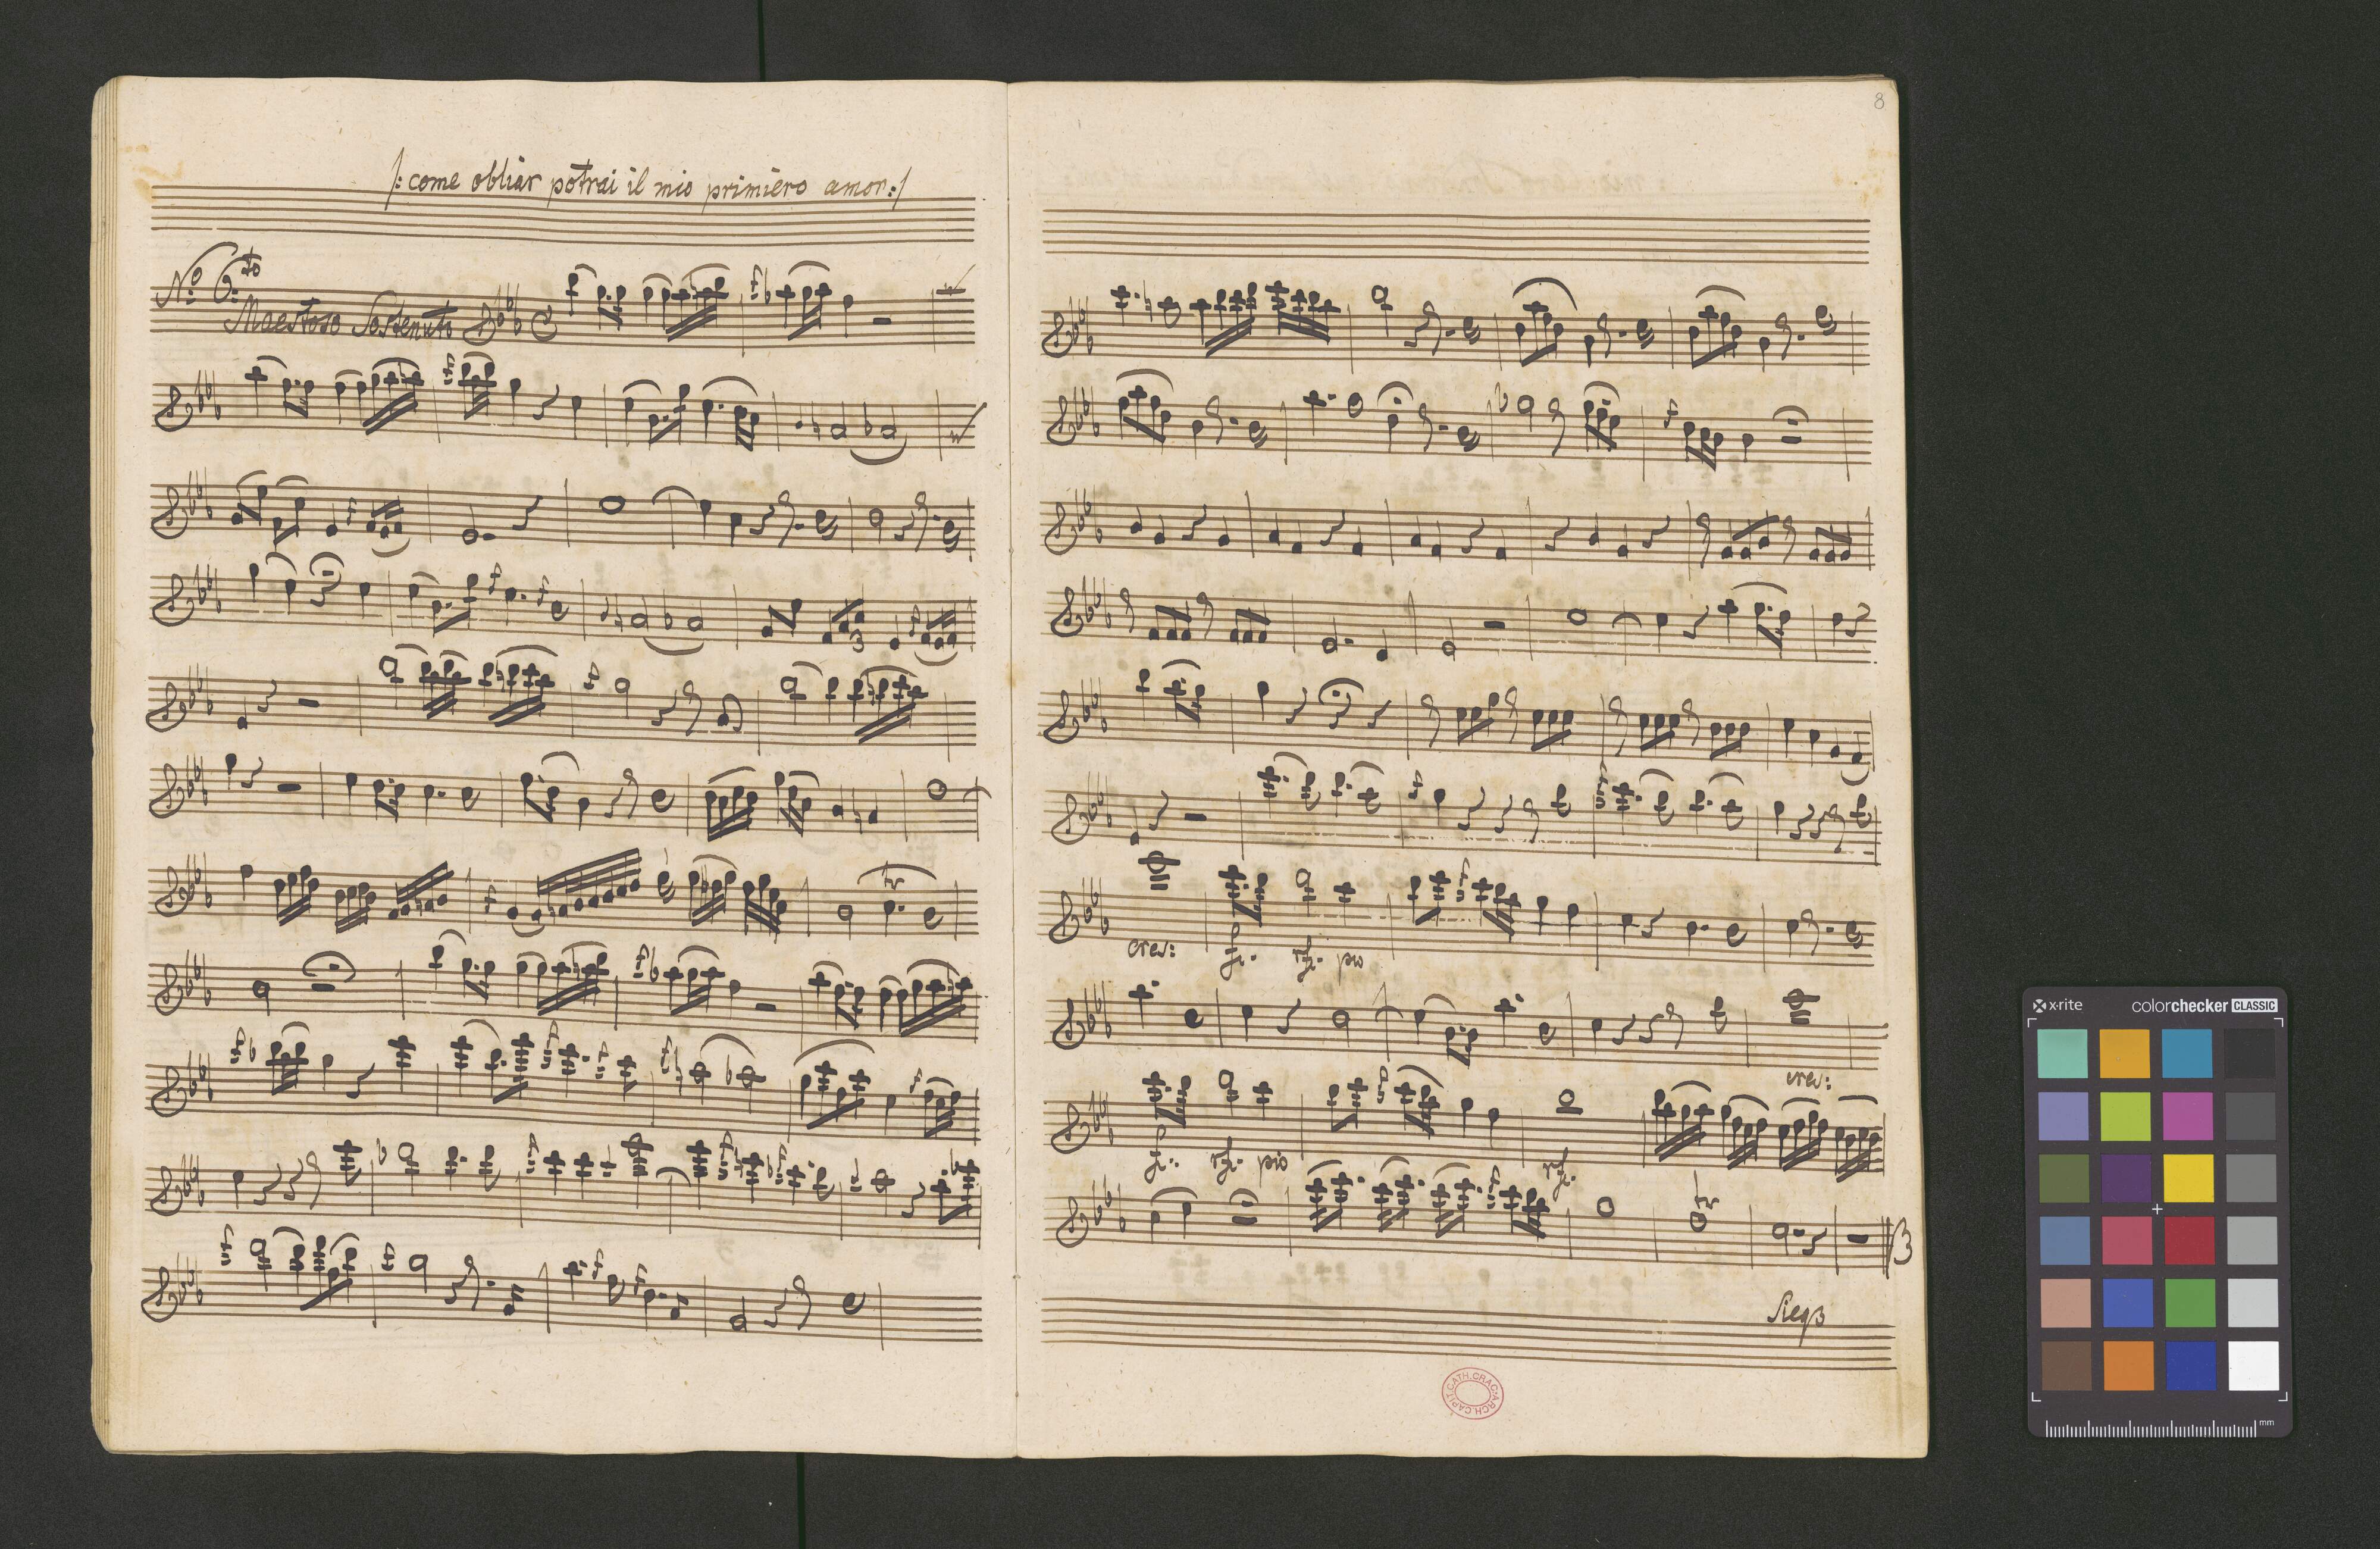 /: come obliar potrai il mio primiero amor :/
No: 6:to
Maestoso Sostenuto
3
tr
8
cres:
fz. rfz. pio
cres:
fz: rfz. pio rfz.
tr
ARCH.CAPIT.CATH.CRAC.
x-rite colorchecker CLASSIC
mm